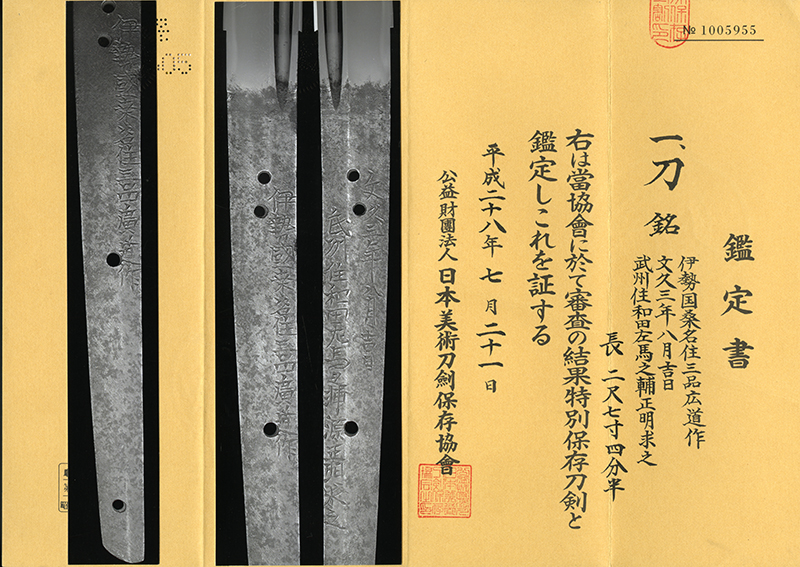 № 1005955
鑑定書
一、刀 銘
伊勢国桑名住三品広道作
文久三年八月吉日
武州住和田左馬之輔正明求之
長 二尺七寸四分半
右は當協會に於て審査の結果特別保存刀剣と
鑑定しこれを証する
平成二十八年 七月 二十一日
公益財團法人 日本美術刀劍保存協會
文久三年八月吉日
伊勢國桑名住三品廣道作
伊勢國桑名住三品廣道作
05